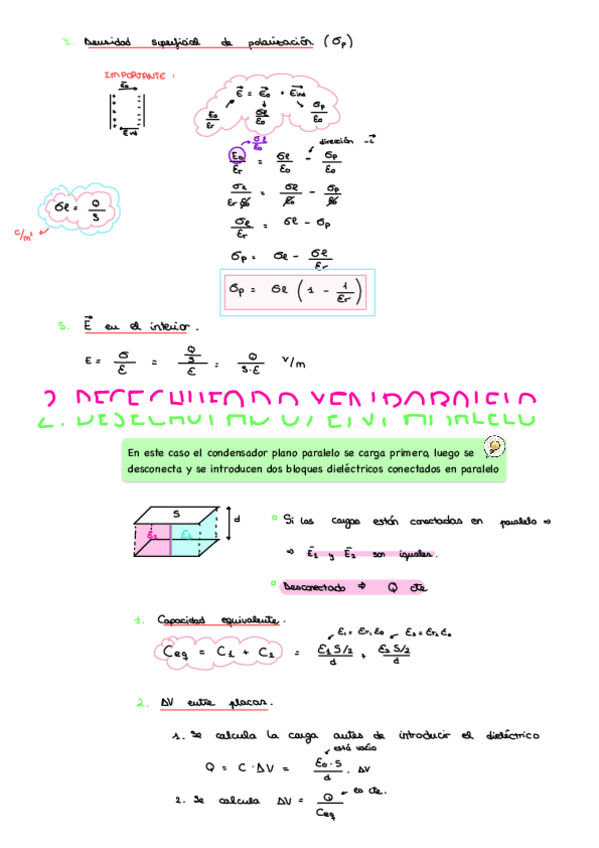 4. Densidad superficial de polarización. (σp)
IMPORTANTE :
E⃗o
+ -
E⃗ind
E⃗ = E⃗o + E⃗ind
Eo/εr σl/εo σp/εo
σl/εo
dirección -i⃗
Eo/εr = σl/εo - σp/εo
σl = Q/S
C/m²
σl/εr εo = σl/εo - σp/εo
σl/εr = σl - σp
σp = σl - σl/εr
σp = σl (1 - 1/εr)
5. E⃗ en el interior.
E = σ/ε = Q/S/ε = Q/S·ε V/m
2. DESECHUFADO Y EN PARALELO
En este caso el condensador plano paralelo se carga primero, luego se
desconecta y se introducen dos bloques dieléctricos conectados en paralelo
S
d
Si las cargas están conectadas en paralelo ⇒
⇒ E⃗1 y E⃗2 son iguales.
Desconectado ⇒ Q cte
1. Capacidad equivalente.
ε1 = εr1 εo ε2 = εr2 εo
Ceq = C1 + C2 = ε1 S/2/d + ε2 S/2/d
2. ΔV entre placas.
1. Se calcula la carga antes de introducir el dieléctrico
está vacío
Q = C·ΔV = εo·S/d · ΔV
2. Se calcula ΔV = Q/Ceq
es cte.